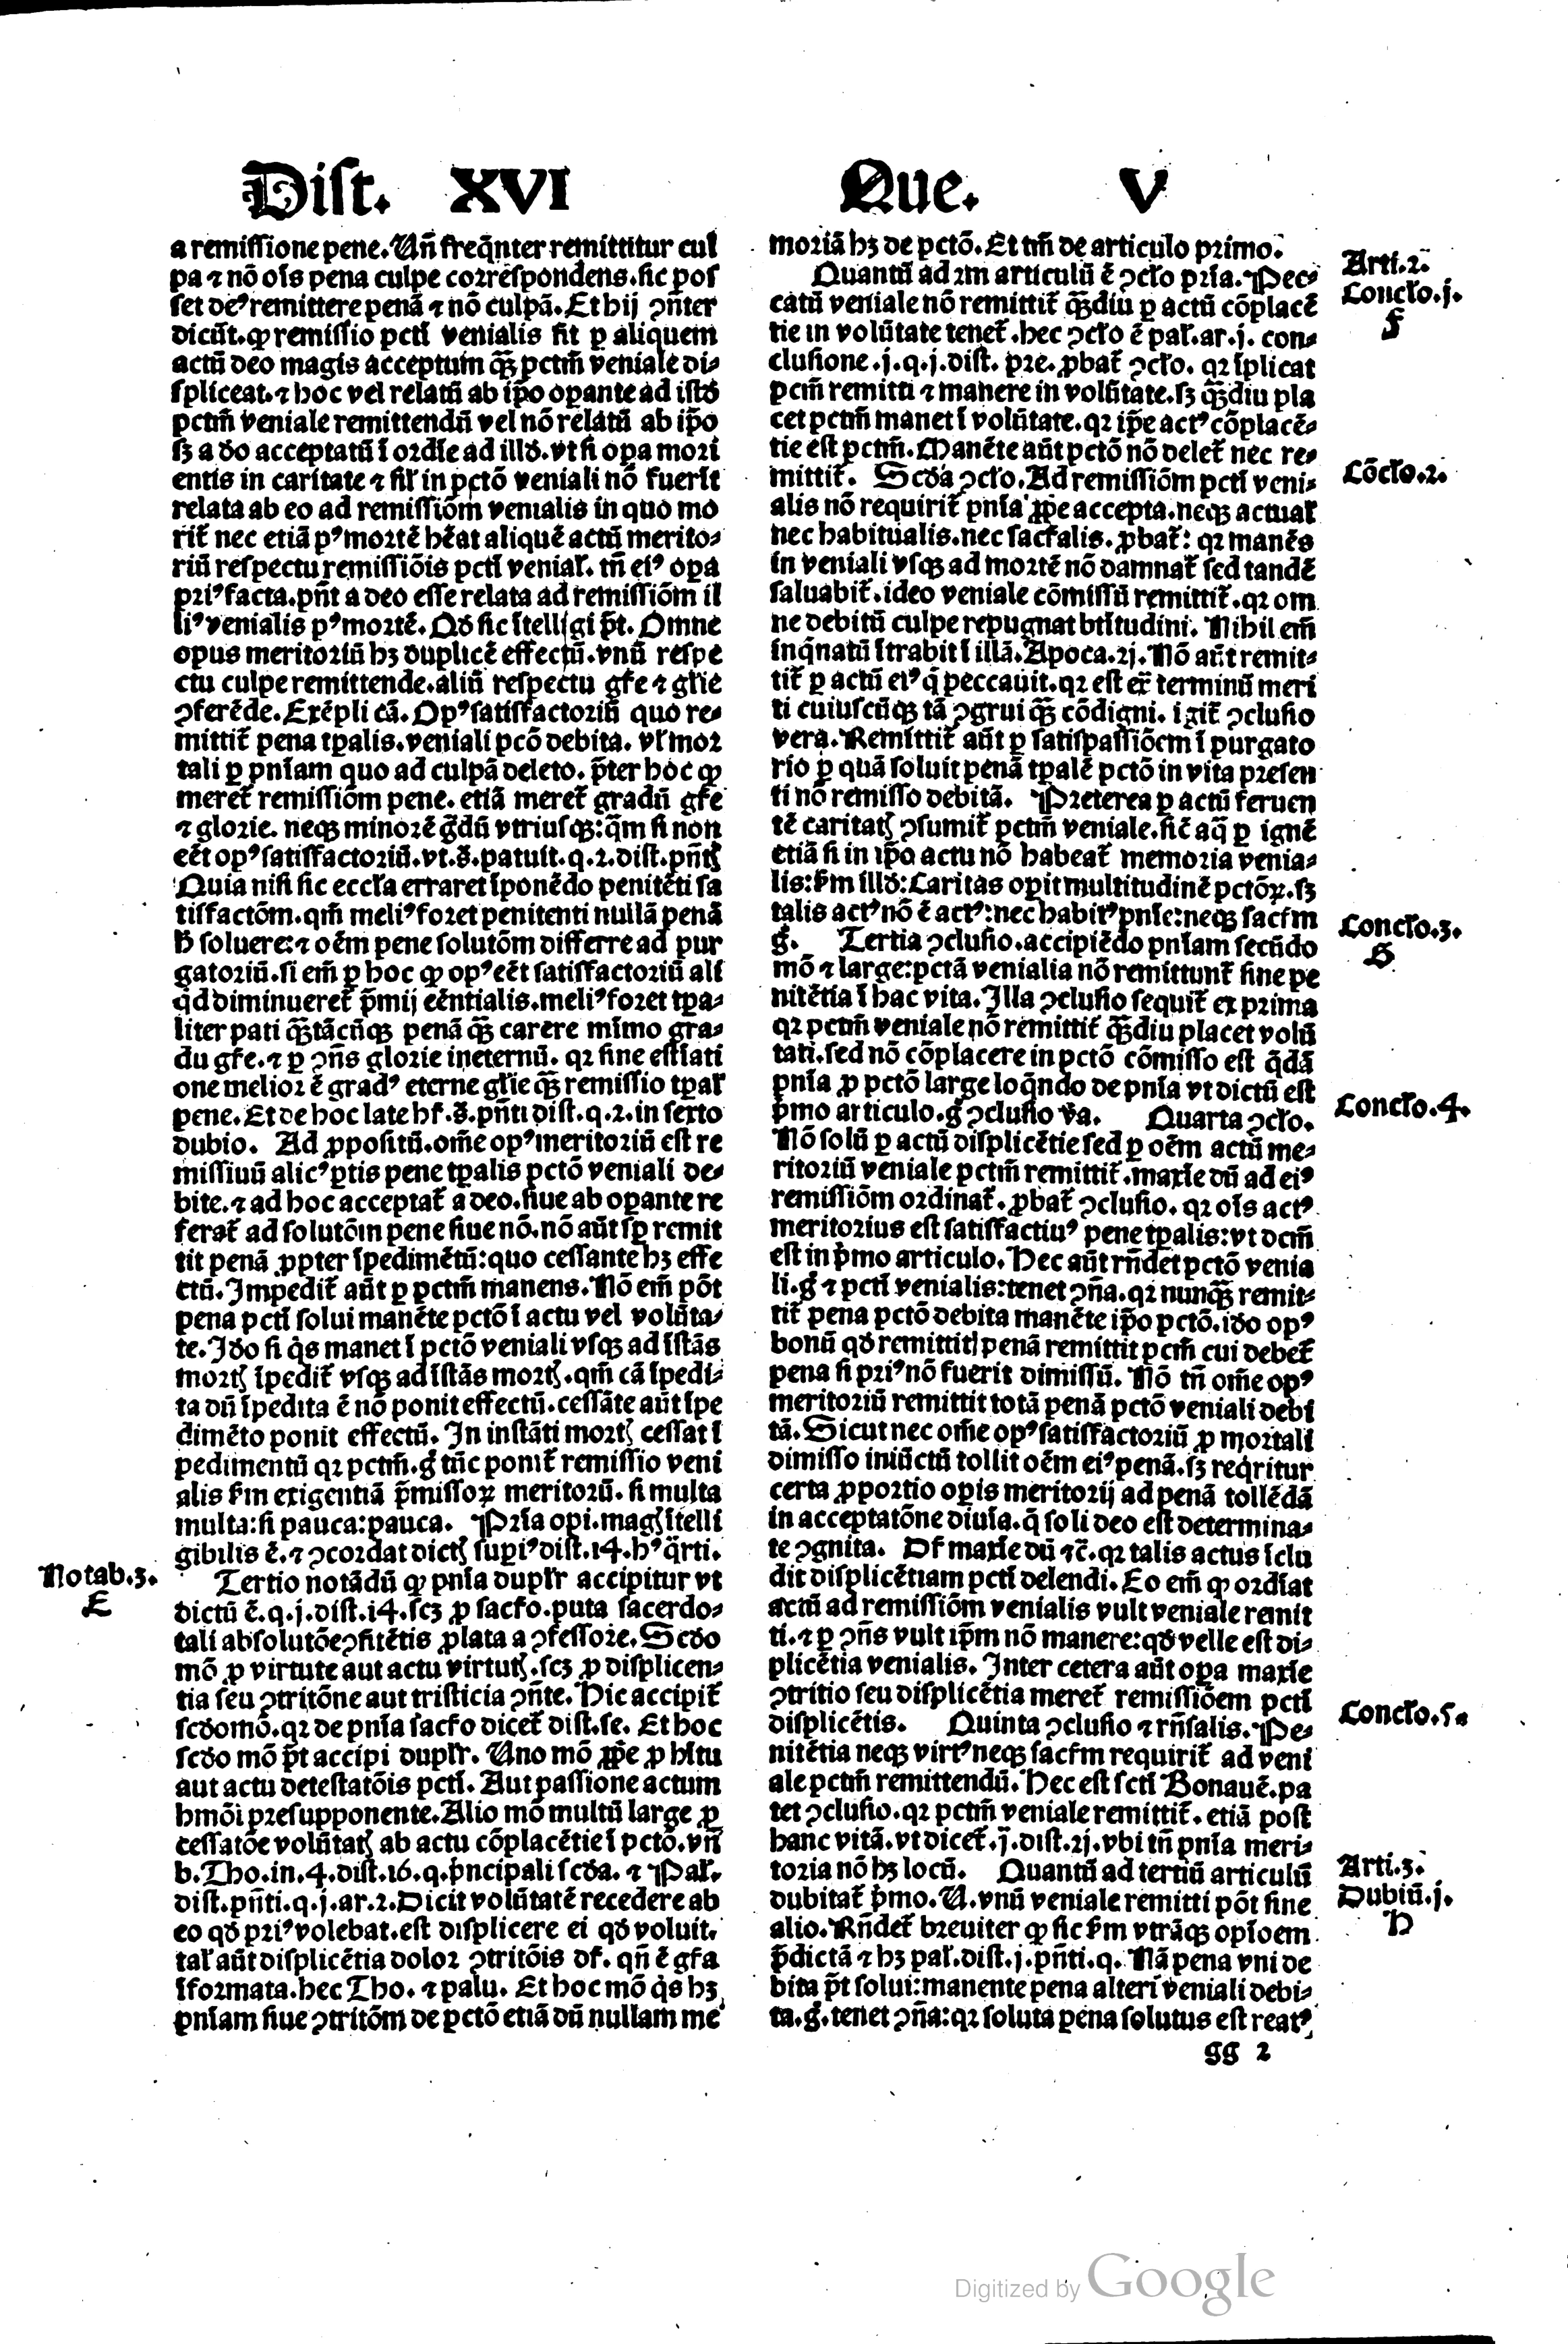 Dist. XVI
Que. V
a remissione pene. Vñ freq̃nter remittitur cul
pa ⁊ nõ oĩs pena culpe correspondens. sic pos
set deꝰ remittere penã ⁊ nõ culpã. Et hij ꝯñter
dicũt. ꝙ remissio pctĩ venialis fit ꝑ aliquem
actũ deo magis acceptum qͣꝫ pctm̃ veniale di⸗
spliceat. ⁊ hoc vel relatũ ab ip̃o oꝑante ad istđ
pctm̃ veniale remittendũ vel nõ relatũ ab ip̃o
sꝫ a deo acceptatũ ĩ ordĩe ad illđ. vt si oꝑa mori
entis in caritate ⁊ sil̃ in pctõ veniali nõ fuerĩt
relata ab eo ad remissiõm venialis in quo mo
rit̃ nec etiã pꝰ mortẽ hẽat aliquẽ actũ merito⸗
riũ respectu remissiõis pctĩ venial̃. tñ eiꝰ oꝑa
priꝰ facta. pñt a deo esse relata ad remissiõm il
liꝰ venialis pꝰ mortẽ. Qđ sic ĩtelligi p̃t. Omne
opus meritoriũ hꝫ duplicẽ effectũ. vnũ respe
ctu culpe remittende. aliũ respectu gr̃e ⁊ gl̃ie
ꝯferẽde. Exẽpli cã. Opꝰ satisfactoriũ quo re⸗
mittit̃ pena tꝑalis. veniali pcõ debita. vl̃ mor
tali ꝑ pñiam quo ad culpã deleto. p̃ter hoc ꝙ
meret̃ remissiõm pene. etiã meret̃ gradũ gr̃e
⁊ glorie. neqꝫ minorẽ g̃dũ vtriusqꝫ: qͣ̃m si non
eẽt opꝰ satisfactoriũ. vt. s̃. patuit. q. 2. dist. pñtꝭ
Quia nisi sic eccl̃a erraret ĩponẽdo penitẽti sa
tisfactõm. qm̃ meliꝰ foret penitenti nullã penã
h̃ soluere: ⁊ oẽm pene solutõm differre ad pur
gatoriũ. si em̃ ꝑ hoc ꝙ opꝰ eẽt satisfactoriũ ali
qͥd diminueret̃ p̃mij eẽntialis. meliꝰ foret tꝑa⸗
liter pati qͣꝫtãcũqꝫ penã qͣꝫ carere minimo gra⸗
du gr̃e. ⁊ ꝑ ꝯñs glorie ineternũ. qꝛ sine estiati
one melior ẽ gradꝰ eterne gl̃ie qͣꝫ remissio tꝑal̃
pene. Et de hoc late hr̃. s̃. pñti dist. q. 2. in sexto
dubio. Ad ꝓpositũ. om̃e opꝰ meritoriũ est re
missiuũ alicꝰ ꝑtis pene tꝑalis pctõ veniali de⸗
bite. ⁊ ad hoc acceptat̃ a deo. siue ab oꝑante re
ferat̃ ad solutõm pene siue nõ. nõ aũt sꝑ remit
tit penã ꝓpter ĩpedimẽtũ: quo cessante hꝫ effe
ctũ. Impedit̃ aũt ꝑ pctm̃ manens. Nõ em̃ põt
pena pctĩ solui manẽte pctõ ĩ actu vel volũta⸗
te. Iđo si qͥs manet ĩ pctõ veniali vsqꝫ ad ĩstãs
mortꝭ ĩpedit̃ vsqꝫ ad ĩstãs mortꝭ. qm̃ cã ĩpedi⸗
ta dũ ĩpedita ẽ nõ ponit effectũ. cessãte aũt ĩpe
dimẽto ponit effectũ. In instãti mortꝭ cessat ĩ
pedimentũ qꝛ pctm̃. g̃ tũc ponit̃ remissio veni
alis s̃m exigentiã p̃missoꝝ meritorũ. si multa
multa: si pauca: pauca. Pr̃ia opi. magꝭ ĩtelli
gibilis ẽ. ⁊ ꝯcordat dictꝭ suꝑiꝰ dist. 14. hꝰ q̃rti.
Notab. 3.
E
Tertio notãdũ ꝙ pñia dupl̃r accipitur vt
dictũ ẽ. q. j. dist. 14. scꝫ ꝓ sacr̃o. puta sacerdo⸗
tali absolutõe ꝯfitẽtis ꝓlata a ꝯfessore. Scđo
mõ ꝓ virtute aut actu virtutꝭ. scꝫ ꝓ displicen⸗
tia seu ꝯtritõne aut tristicia ꝯñte. Hic accipit̃
scđo mõ. qꝛ de pñia sacr̃o dicet̃ dist. se. Et hoc
scđo mõ p̃t accipi dupl̃r. Uno mõ ꝓp̃e ꝓ hĩtu
aut actu detestatõis pctĩ. Aut passione actum
hmõi presupponente. Alio mõ multũ large ꝓ
cessatõe volũtatꝭ ab actu cõplacẽtie ĩ pctõ. vñ
b. Tho. in. 4. dist. 16. q. p̃ncipali scđa. ⁊ Pal̃.
dist. pñti. q. j. ar. 2. Dicit volũtatẽ recedere ab
eo qđ priꝰ volebat. est displicere ei qđ voluit.
tal̃ aũt displicẽtia dolor ꝯtritõis dr̃. qñ ẽ gr̃a
ĩformata. hec Tho. ⁊ palu. Et hoc mõ qͥs hꝫ
pñiam siue ꝯtritõm de pctõ etiã dũ nullam me
moriã hꝫ de pctõ. Et tm̃ de articulo primo.
Arti. 2.
Conclo. j.
F
Quantũ ad 2m articulũ ẽ ꝯclo pr̃ia. Pec⸗
catũ veniale nõ remittit̃ qͣꝫdiu ꝑ actũ cõplacẽ
tie in volũtate tenet̃. hec ꝯclo ẽ pal̃. ar. j. con⸗
clusione. j. q. j. dist. pre. ꝓbat̃ ꝯclo. qꝛ ĩplicat
pcm̃ remitti ⁊ manere in volũtate. sꝫ qͣꝫdiu pla
cet pctm̃ manet ĩ volũtate. qꝛ ip̃e actꝰ cõplacẽ⸗
tie est pctm̃. Manẽte aũt pctõ nõ delet̃ nec re⸗
mittit̃. Scđa ꝯclo. Ad remissiõm pctĩ veni⸗
Cõclo. 2.
alis nõ requirit̃ pñia ꝓp̃e accepta. neqꝫ actual̃
nec habitualis. nec sacr̃alis. ꝓbat̃: qꝛ manẽs
in veniali vsqꝫ ad mortẽ nõ damnat̃ sed tandẽ
saluabit̃. ideo veniale cõmissũ remittit̃. qꝛ om
ne debitũ culpe repugnat btĩtudini. Nihil em̃
inqͥnatũ ĩtrabit ĩ illã. Apoca. 2j. Nõ aũt remit⸗
tit̃ ꝑ actũ eiꝰ qͥ peccauit. qꝛ est ex̃ terminũ meri
ti cuiuscũqꝫ tã ꝯgrui qͣꝫ cõdigni. igit̃ ꝯclusio
vera. Remittit̃ aũt ꝑ satispassiõem ĩ purgato
rio ꝑ quã soluit penã tꝑalẽ pctõ in vita presen
ti nõ remisso debitã. Preterea ꝑ actũ feruen
tẽ caritatꝭ ꝯsumit̃ pctm̃ veniale. sic̃ aq̃ ꝑ ignẽ
etiã si in ip̃o actu nõ habeat̃ memoria venia⸗
lis: s̃m illđ: Caritas oꝑit multitudinẽ pctõꝝ. sꝫ
talis actꝰ nõ ẽ actꝰ: nec habitꝰ pñie: neqꝫ sacr̃m
g̃. Tertia ꝯclusio. accipiẽdo pñiam secũdo
Conclo. 3.
G
mõ ⁊ large: pctã venialia nõ remittunt̃ sine pe
nitẽtia ĩ hac vita. Illa ꝯclusio sequit̃ ex prima
qꝛ pctm̃ veniale nõ remittit̃ qͣꝫdiu placet volũ
tati. sed nõ cõplacere in pctõ cõmisso est q̃dã
pñia ꝓ pctõ large loq̃ndo de pñia vt dictũ est
p̃mo articulo. g̃ ꝯclusio ṽa. Quarta ꝯclo.
Conclo. 4.
Nõ solũ ꝑ actũ displicẽtie sed ꝑ oẽm actũ me⸗
ritoriũ veniale pctm̃ remittit̃. maxĩe dũ ad eiꝰ
remissiõm ordinat̃. ꝓbat̃ ꝯclusio. qꝛ oĩs actꝰ
meritorius est satisfactiuꝰ pene tꝑalis: vt dcm̃
est in p̃mo articulo. Hec aũt rñdet pctõ venia
li. g̃ ⁊ pctĩ venialis: tenet ꝯña. qꝛ nunqͣꝫ remit⸗
tit̃ pena pctõ debita manẽte ip̃o pctõ. iđo opꝰ
bonũ qđ remittit penã remittit pcm̃ cui debet̃
pena si priꝰ nõ fuerit dimissũ. Nõ tñ om̃e opꝰ
meritoriũ remittit totã penã pctõ veniali debi
tã. Sicut nec om̃e opꝰ satisfactoriũ ꝓ mortali
dimisso iniũctũ tollit oẽm eiꝰ penã. sꝫ reqͥritur
certa ꝓportio oꝑis meritorij ad penã tollẽdã
in acceptatõne diuĩa. q̃ soli deo est determina⸗
te ꝯgnita. Dr̃ maxĩe dũ ⁊c̃. qꝛ talis actus ĩclu
dit displicẽtiam pctĩ delendi. Eo em̃ ꝙ ordĩat
actũ ad remissiõm venialis vult veniale remit
ti. ⁊ ꝑ ꝯñs vult ip̃m nõ manere: qđ velle est di⸗
plicẽtia venialis. Inter cetera aũt oꝑa maxĩe
ꝯtritio seu displicẽtia meret̃ remissiõem pctĩ
displicẽtis. Quinta ꝯclusio ⁊ rñsalis. Pe⸗
Conclo. 5.
nitẽtia neqꝫ virtꝰ neqꝫ sacr̃m requirit̃ ad veni
ale pctm̃ remittendũ. Hec est sctĩ Bonauẽ. pa
tet ꝯclusio. qꝛ pctm̃ veniale remittit̃. etiã post
hanc vitã. vt dicet̃. j̃. dist. 2j. vbi tñ pñia meri⸗
toria nõ hꝫ locũ. Quantũ ad tertiũ articulũ
Arti. 3.
Dubiũ. j.
H
dubitat̃ p̃mo. U. vnũ veniale remitti põt sine
alio. Rñdet̃ breuiter ꝙ sic s̃m vtrãqꝫ opĩoem
p̃dictã ⁊ hꝫ pal̃. dist. j. pñti. q. Nã pena vni de
bita p̃t solui: manente pena alteri veniali debi⸗
ta. g̃. tenet ꝯña: qꝛ soluta pena solutus est reatꝰ
gg 2
Digitized by Google